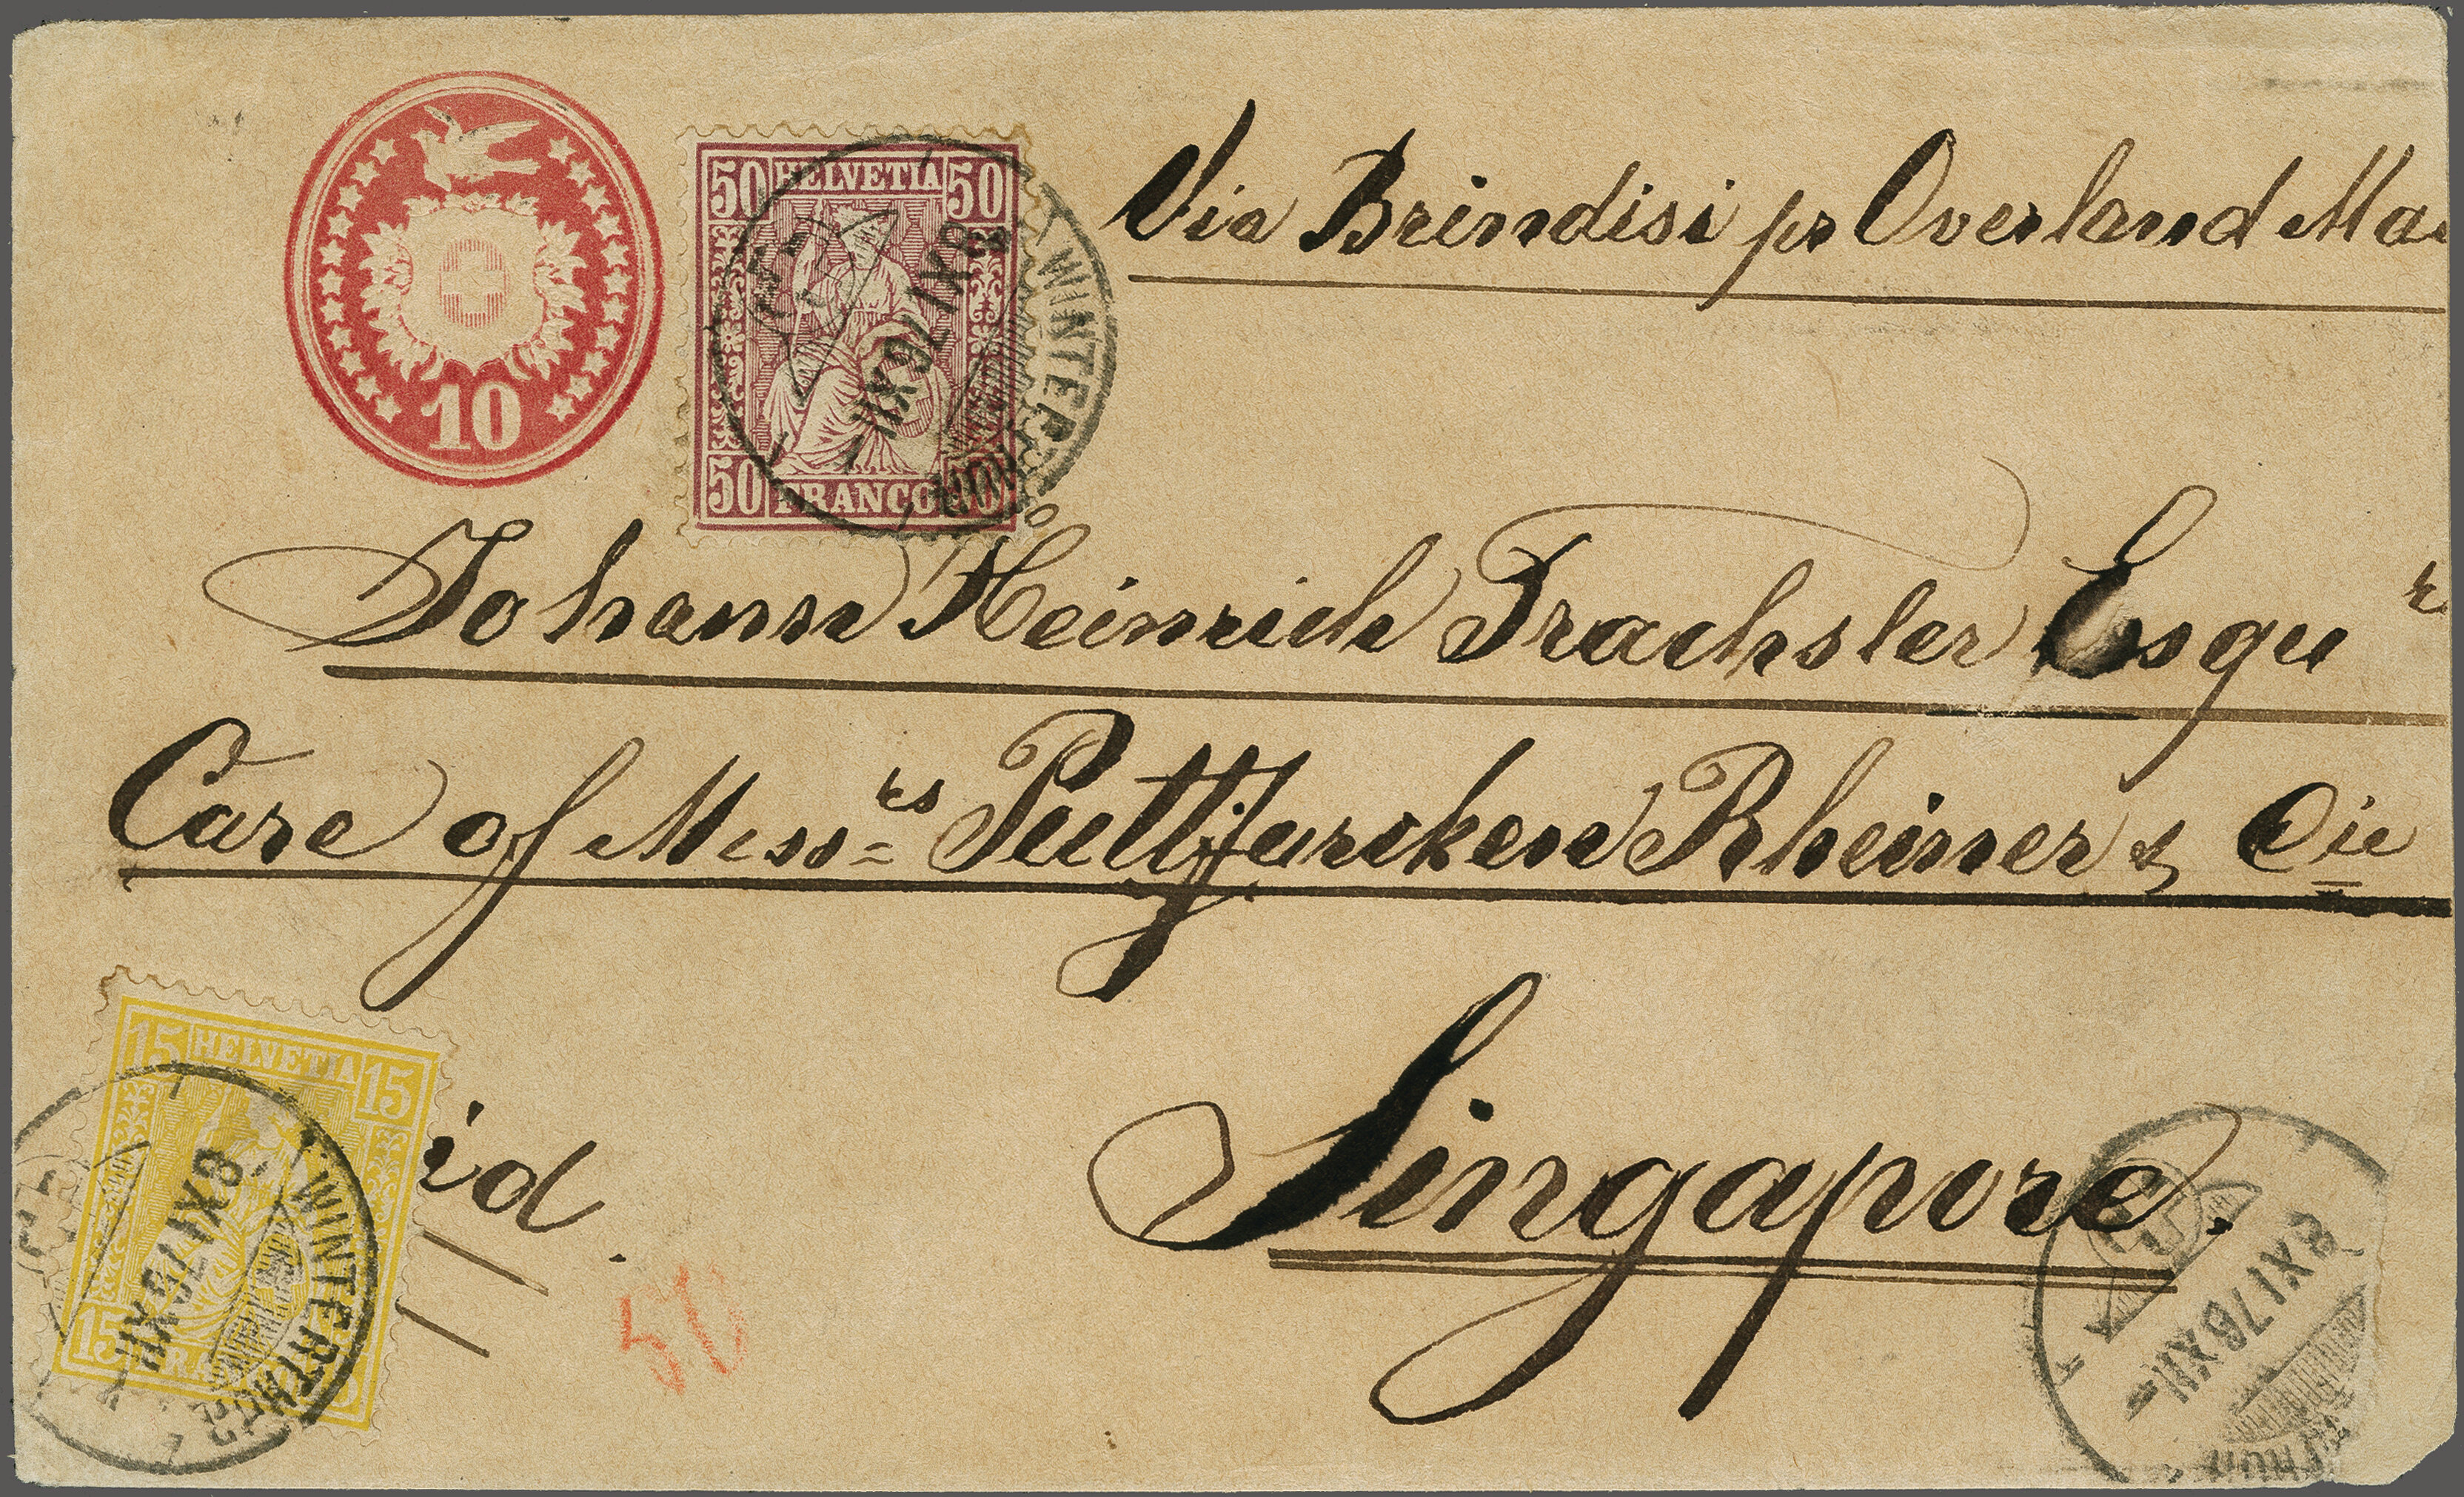 10
50 HELVETIA 50
50 FRANCO 50
WINTERTHUR
8 XI 76 XII
Via Brindisi pr Overland Mai
Johann Heinrich Trachsler Esqu re
Care of Mess rs Puttfarcken Rheiner & Cie
15 HELVETIA 15
15 FRANCO 15
WINTERTHUR
8 XI 76 XII
id.
50
Singapore.
8 XI 76 XII
THUR